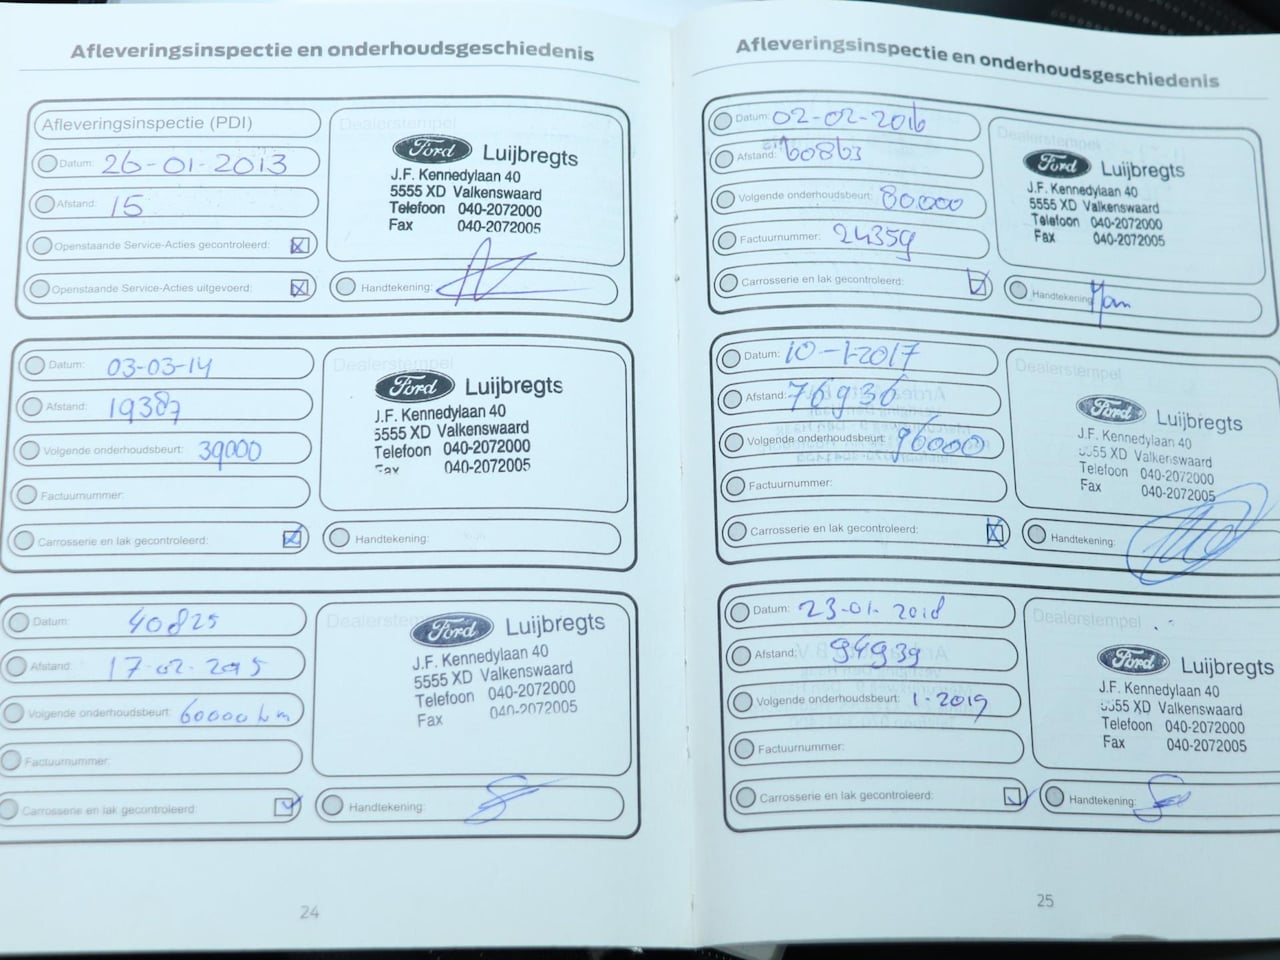 Afleveringsinspectie en onderhoudsgeschiedenis
Afleveringsinspectie (PDI)
Datum: 26-01-2013
Afstand: 15
Openstaande Service-Acties gecontroleerd:
Openstaande Service-Acties uitgevoerd:
Dealerstempel
Ford Luijbregts
J.F. Kennedylaan 40
5555 XD Valkenswaard
Telefoon 040-2072000
Fax 040-2072005
Handtekening:
Datum: 03-03-14
Afstand: 19387
Volgende onderhoudsbeurt: 39000
Factuurnummer:
Carrosserie en lak gecontroleerd:
Dealerstempel
Ford Luijbregts
J.F. Kennedylaan 40
5555 XD Valkenswaard
Telefoon 040-2072000
Fax 040-2072005
Handtekening:
Datum: 40825
Afstand: 17-02-2015
Volgende onderhoudsbeurt: 60000 km
Factuurnummer:
Carrosserie en lak gecontroleerd:
Dealerstempel
Ford Luijbregts
J.F. Kennedylaan 40
5555 XD Valkenswaard
Telefoon 040-2072000
Fax 040-2072005
Handtekening:
24
Afleveringsinspectie en onderhoudsgeschiedenis
Datum: 02-02-2016
Afstand: 60863
Volgende onderhoudsbeurt: 80000
Factuurnummer: 24359
Carrosserie en lak gecontroleerd:
Dealerstempel
Ford Luijbregts
J.F. Kennedylaan 40
5555 XD Valkenswaard
Telefoon 040-2072000
Fax 040-2072005
Handtekening
Datum: 10-1-2017
Afstand: 76936
Volgende onderhoudsbeurt: 96000
Factuurnummer:
Carrosserie en lak gecontroleerd:
Dealerstempel
Ford Luijbregts
J.F. Kennedylaan 40
5555 XD Valkenswaard
Telefoon 040-2072000
Fax 040-2072005
Handtekening:
Datum: 23-01-2018
Afstand: 94939
Volgende onderhoudsbeurt: 1-2019
Factuurnummer:
Carrosserie en lak gecontroleerd:
Dealerstempel
Ford Luijbregts
J.F. Kennedylaan 40
5555 XD Valkenswaard
Telefoon 040-2072000
Fax 040-2072005
Handtekening:
25